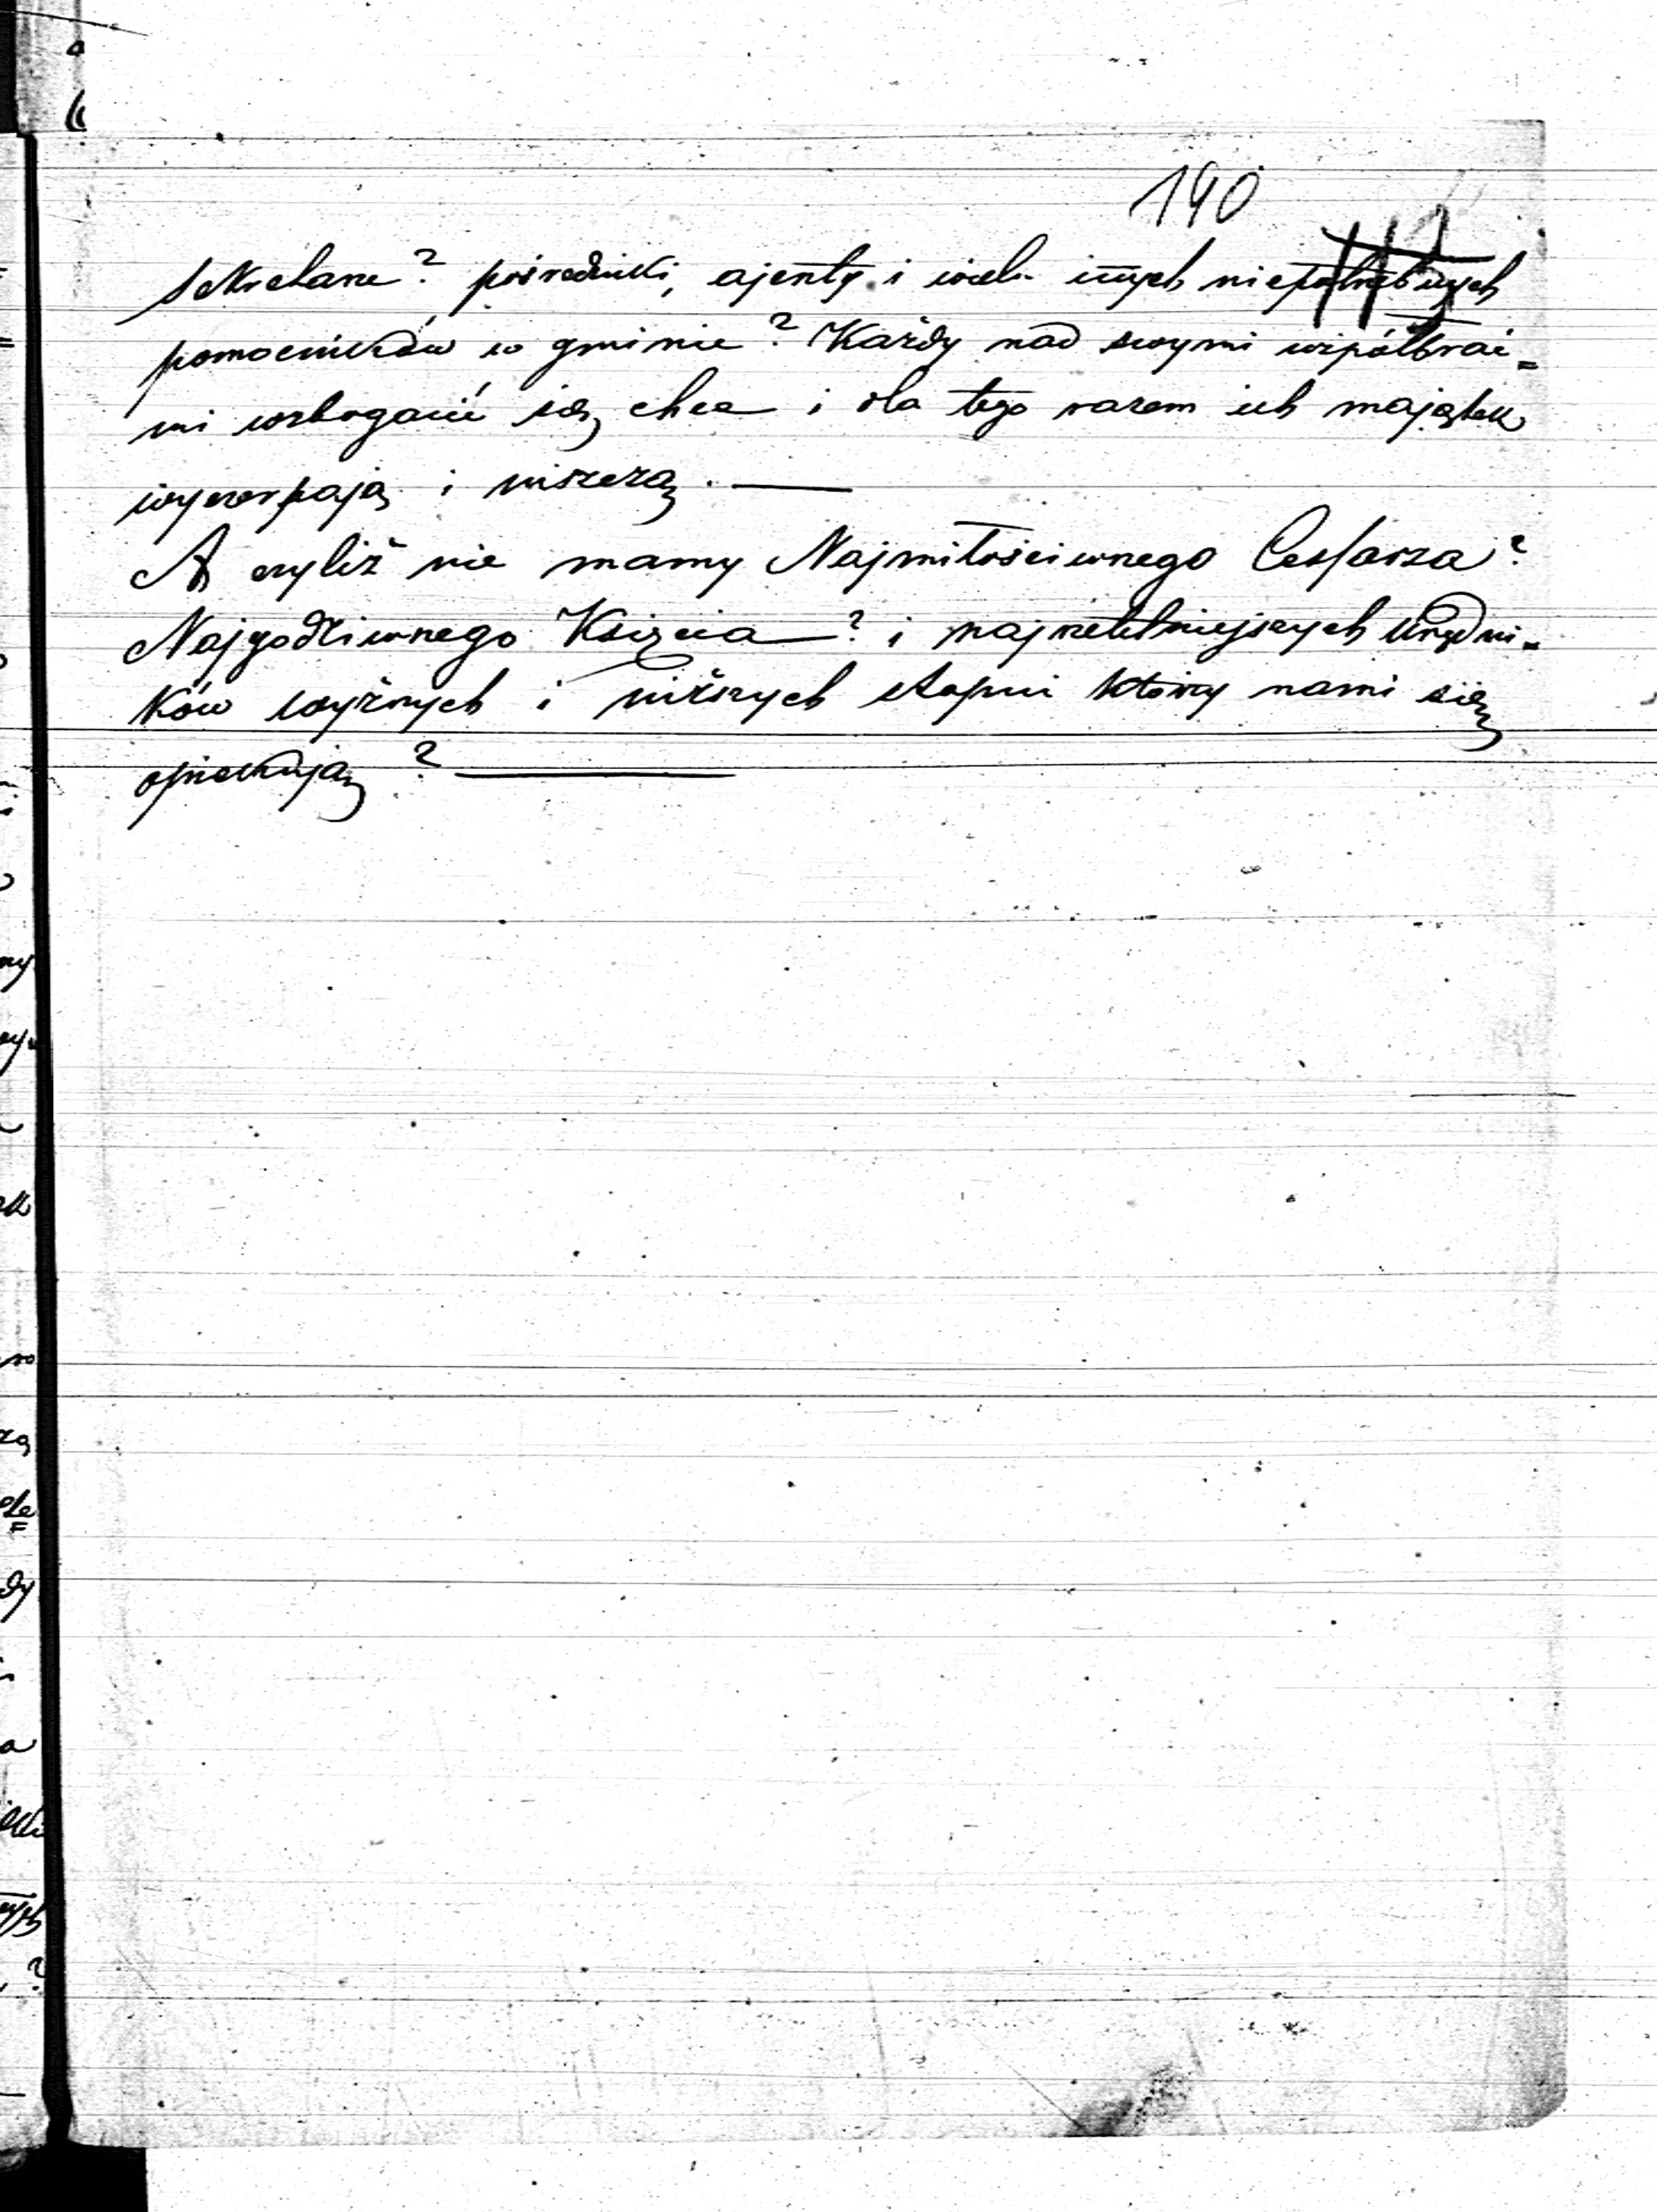 190
Sekretarze? pośredniki, ajenty i wielu in̄ych niepotrzebnych
pomocników w gminie? Każdy nad swymi współbrać=
mi wzbogacić się chce i dla tego razem ich majątek
wyczerpają i niszczą. —
A czyliż nie mamy Najmiłościwnego Cesſarza?
Najgodziwnego Księcia? i najrzetelniejszych Urzędni=
ków wyższych i niższych stopni którzy nami się
opiekują? —